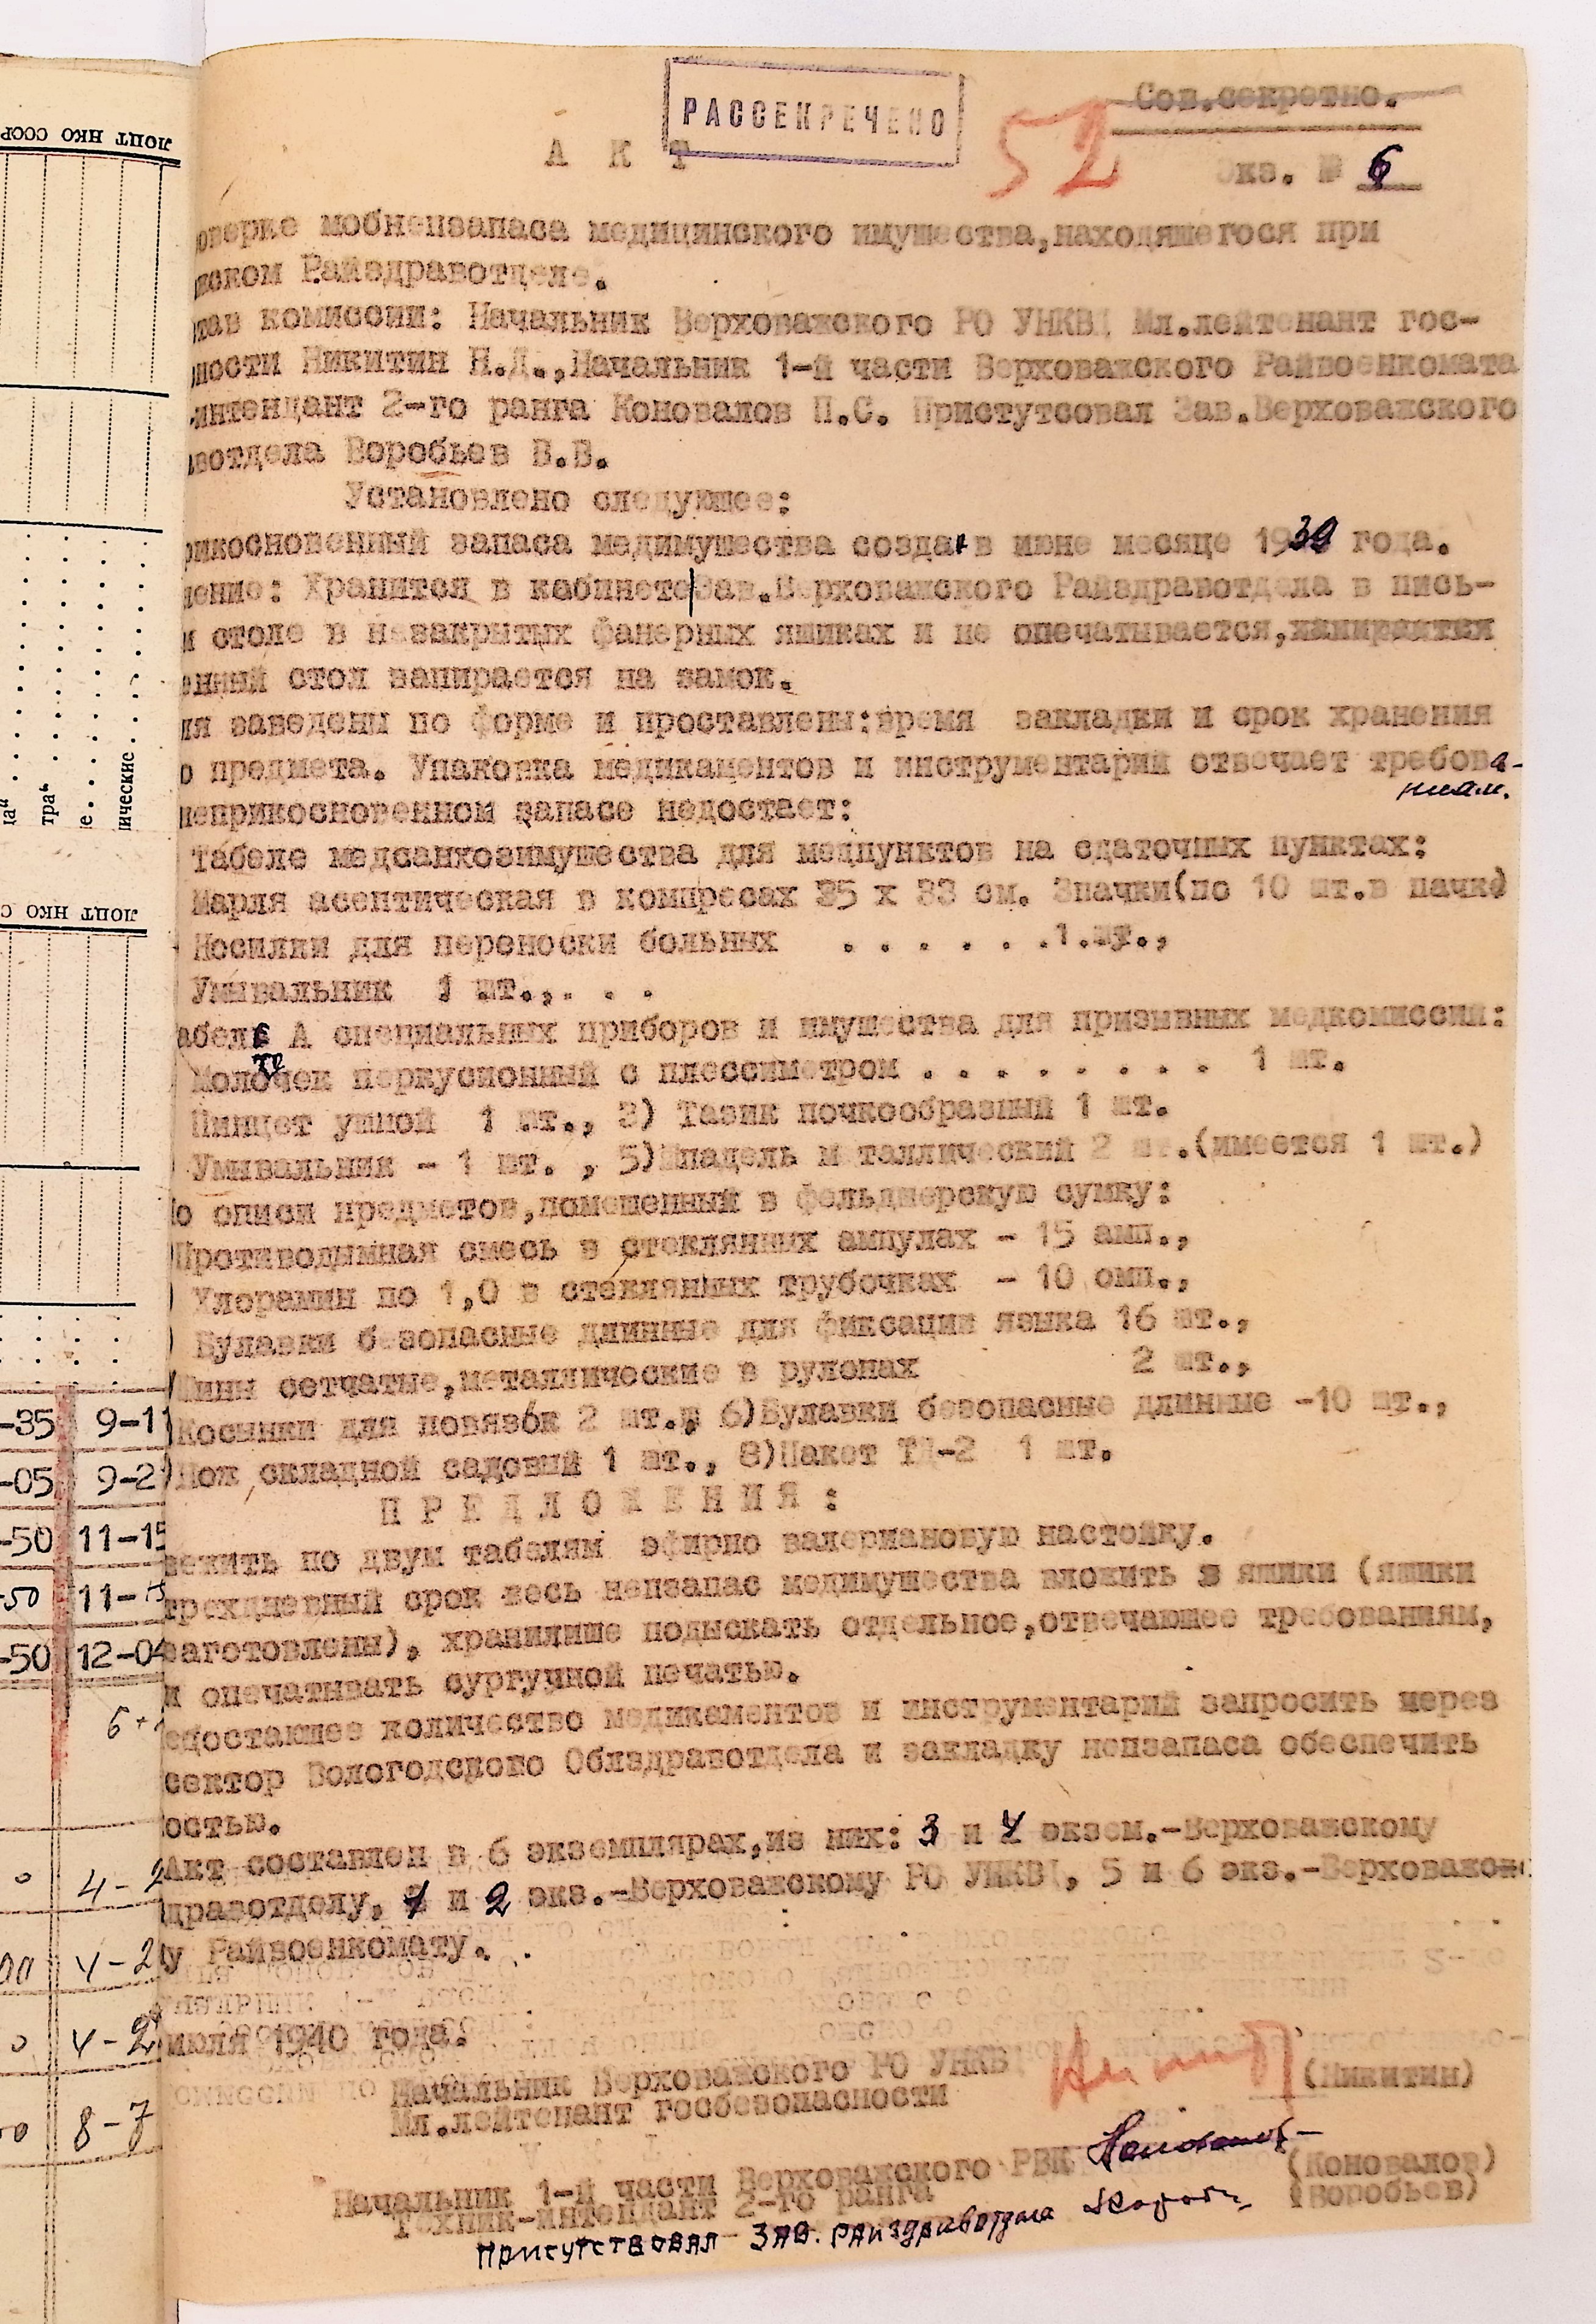 РАССЕКРЕЧЕНО
Сов.секретно.
52
А К Т
Экз. № 6
оверке мобнепзапаса медицинского имушества,находяшегося при
ском Райздравотделе.
тав комиссии: Начальник Верховажского РО УНКВД Мл.лейтенант гос-
ности Никитин Н.Д.,Начальник 1-й части Верховажского Райвоенкомата
-интендант 2-го ранга Коновалов П.С. Пристутсовал Зав.Верховажского
вотдела Воробьев В.В.
Установлено следуюшее:
рикосновенный запаса медимушества создан в июне месяце 1939 года.
нение: Хранится в кабинете Зав.Верховажского Райздравотдела в пись-
м столе в незакрытых фанерных яшиках и не опечатывается,
енный стол запирается на замок.
ия заведены по форме и проставлены:время закладки и срок хранения
о предмета. Упаковка медикаментов и инструментарий отвечает требова-
ниям.
неприкосновенном запасе недостает:
табеле медсанхозимушества для медпунктов на сдаточных пунктах:
Марля асептическая в компресах 35 х 33 см. 3пачки(по 10 шт.в пачке)
Носилки для переноски больных . . . . . . .1.шт.,
Умывальник 1 шт.,. . .
абеле А специальных приборов и имушества для призывных медкомиссии:
Молоточек перкусионный с плессиметром . . . . . . . . . 1 шт.
Пинцет ушной 1 шт., 3) Тазик почкообразный 1 шт.
Умывальник - 1 шт. , 5)Шпадель металлический 2 шт.(имеется 1 шт.)
о описи предметов,помешенный в фельдшерскую сумку:
)Противодымная смесь в стеклянных ампулах - 15 амп.,
) Хлорамин по 1,0 в стеклянных трубочках - 10 омп.,
) Булавки безопасные длинные для фиксации языка 16 шт.,
)Шины сетчатые,металлические в рулонах 2 шт.,
)Косынки для повязок 2 шт., 6)Булавки безопасные длинные -10 шт.,
)Нож складной садовый 1 шт., 8)Пакет ТД-2 1 шт.
П Р Е Д Л О Ж Е Н И Я :
вежить по двум табелям эфирно валериановую настойку.
трехдневный срок весь непзапас медимушества вложить в яшики (яшики
заготовлены), хранилише подыскать отдельное,отвечаюшее требованиям,
и опечатывать сургучной печатью.
едостаюшее количество медикаментов и инструментарий запросить через
сектор Вологодского Облздравотдела и закладку непзапаса обеспечить
остью.
Акт составлен в 6 экземплярах,из них: 3 и 4 экзем.-Верховажскому
дравотделу, 1 и 2 экз.-Верховажскому РО УНКВД, 5 и 6 экз.-Верховажско
у Райвоенкомату.
июля 1940 года.
Начальник Верховажского РО УНКВД
Мл.лейтенант госбезопасности
(Никитин)
Начальник 1-й части Верховажского РВК
Техник-интендант 2-го ранга
(Коновалов)
(Воробьев)
Присутствовал Зав. райздравотдела
ЛОЦТ НКО СССР
ические
тра"
ЛОЦТ НКО С
-35 9-11
-05 9-2
-50 11-15
-50 11-15
-50 12-04
6+
4-2
4-2
4-2
8-7